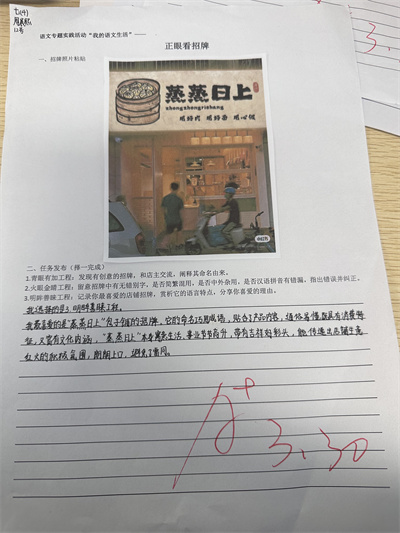 七(4)
12号
语文专题实践活动“我的语文生活”——
正眼看招牌
一、招牌照片粘贴
蒸蒸日上
zhengzhengrishang
用好肉 用好面 用心做
小红书
二、任务发布（择一完成）
1.青眼有加工程：发现有创意的招牌，和店主交流，阐释其命名由来。
2.火眼金睛工程：留意招牌中有无错别字，是否简繁混用，是否中外杂用，是否汉语拼音有错漏，指出错误并纠正。
3.明眸善睐工程：记录你最喜爱的店铺招牌，赏析它的语言特点，分享你喜爱的理由。
我选择的是3.明眸善睐工程。
我最喜爱的是“蒸蒸日上”包子铺的招牌，它的命名巧用成语，贴合了产品内容，通俗易懂既具有消费特
征，又富有文化内涵，“蒸蒸日上”本身寓意生活、事业节节高升，带有吉祥好彩头，能传递出店铺生意
红火的积极氛围，朗朗上口，避免了雷同。
A+
3.30